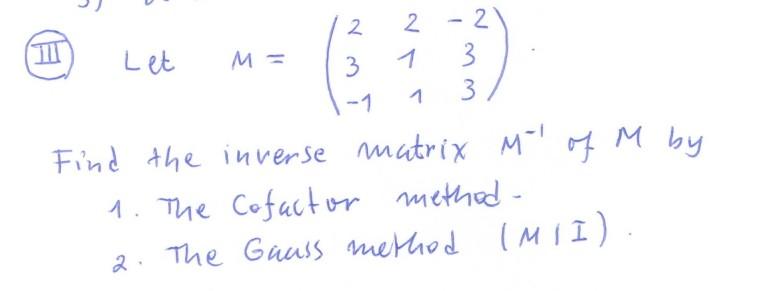 III Let M = ( 2 2 -2
3 1 3
-1 1 3 ) .
Find the inverse matrix M⁻¹ of M by
1. The Cofactor method -
2. The Gauss method (M | I) .